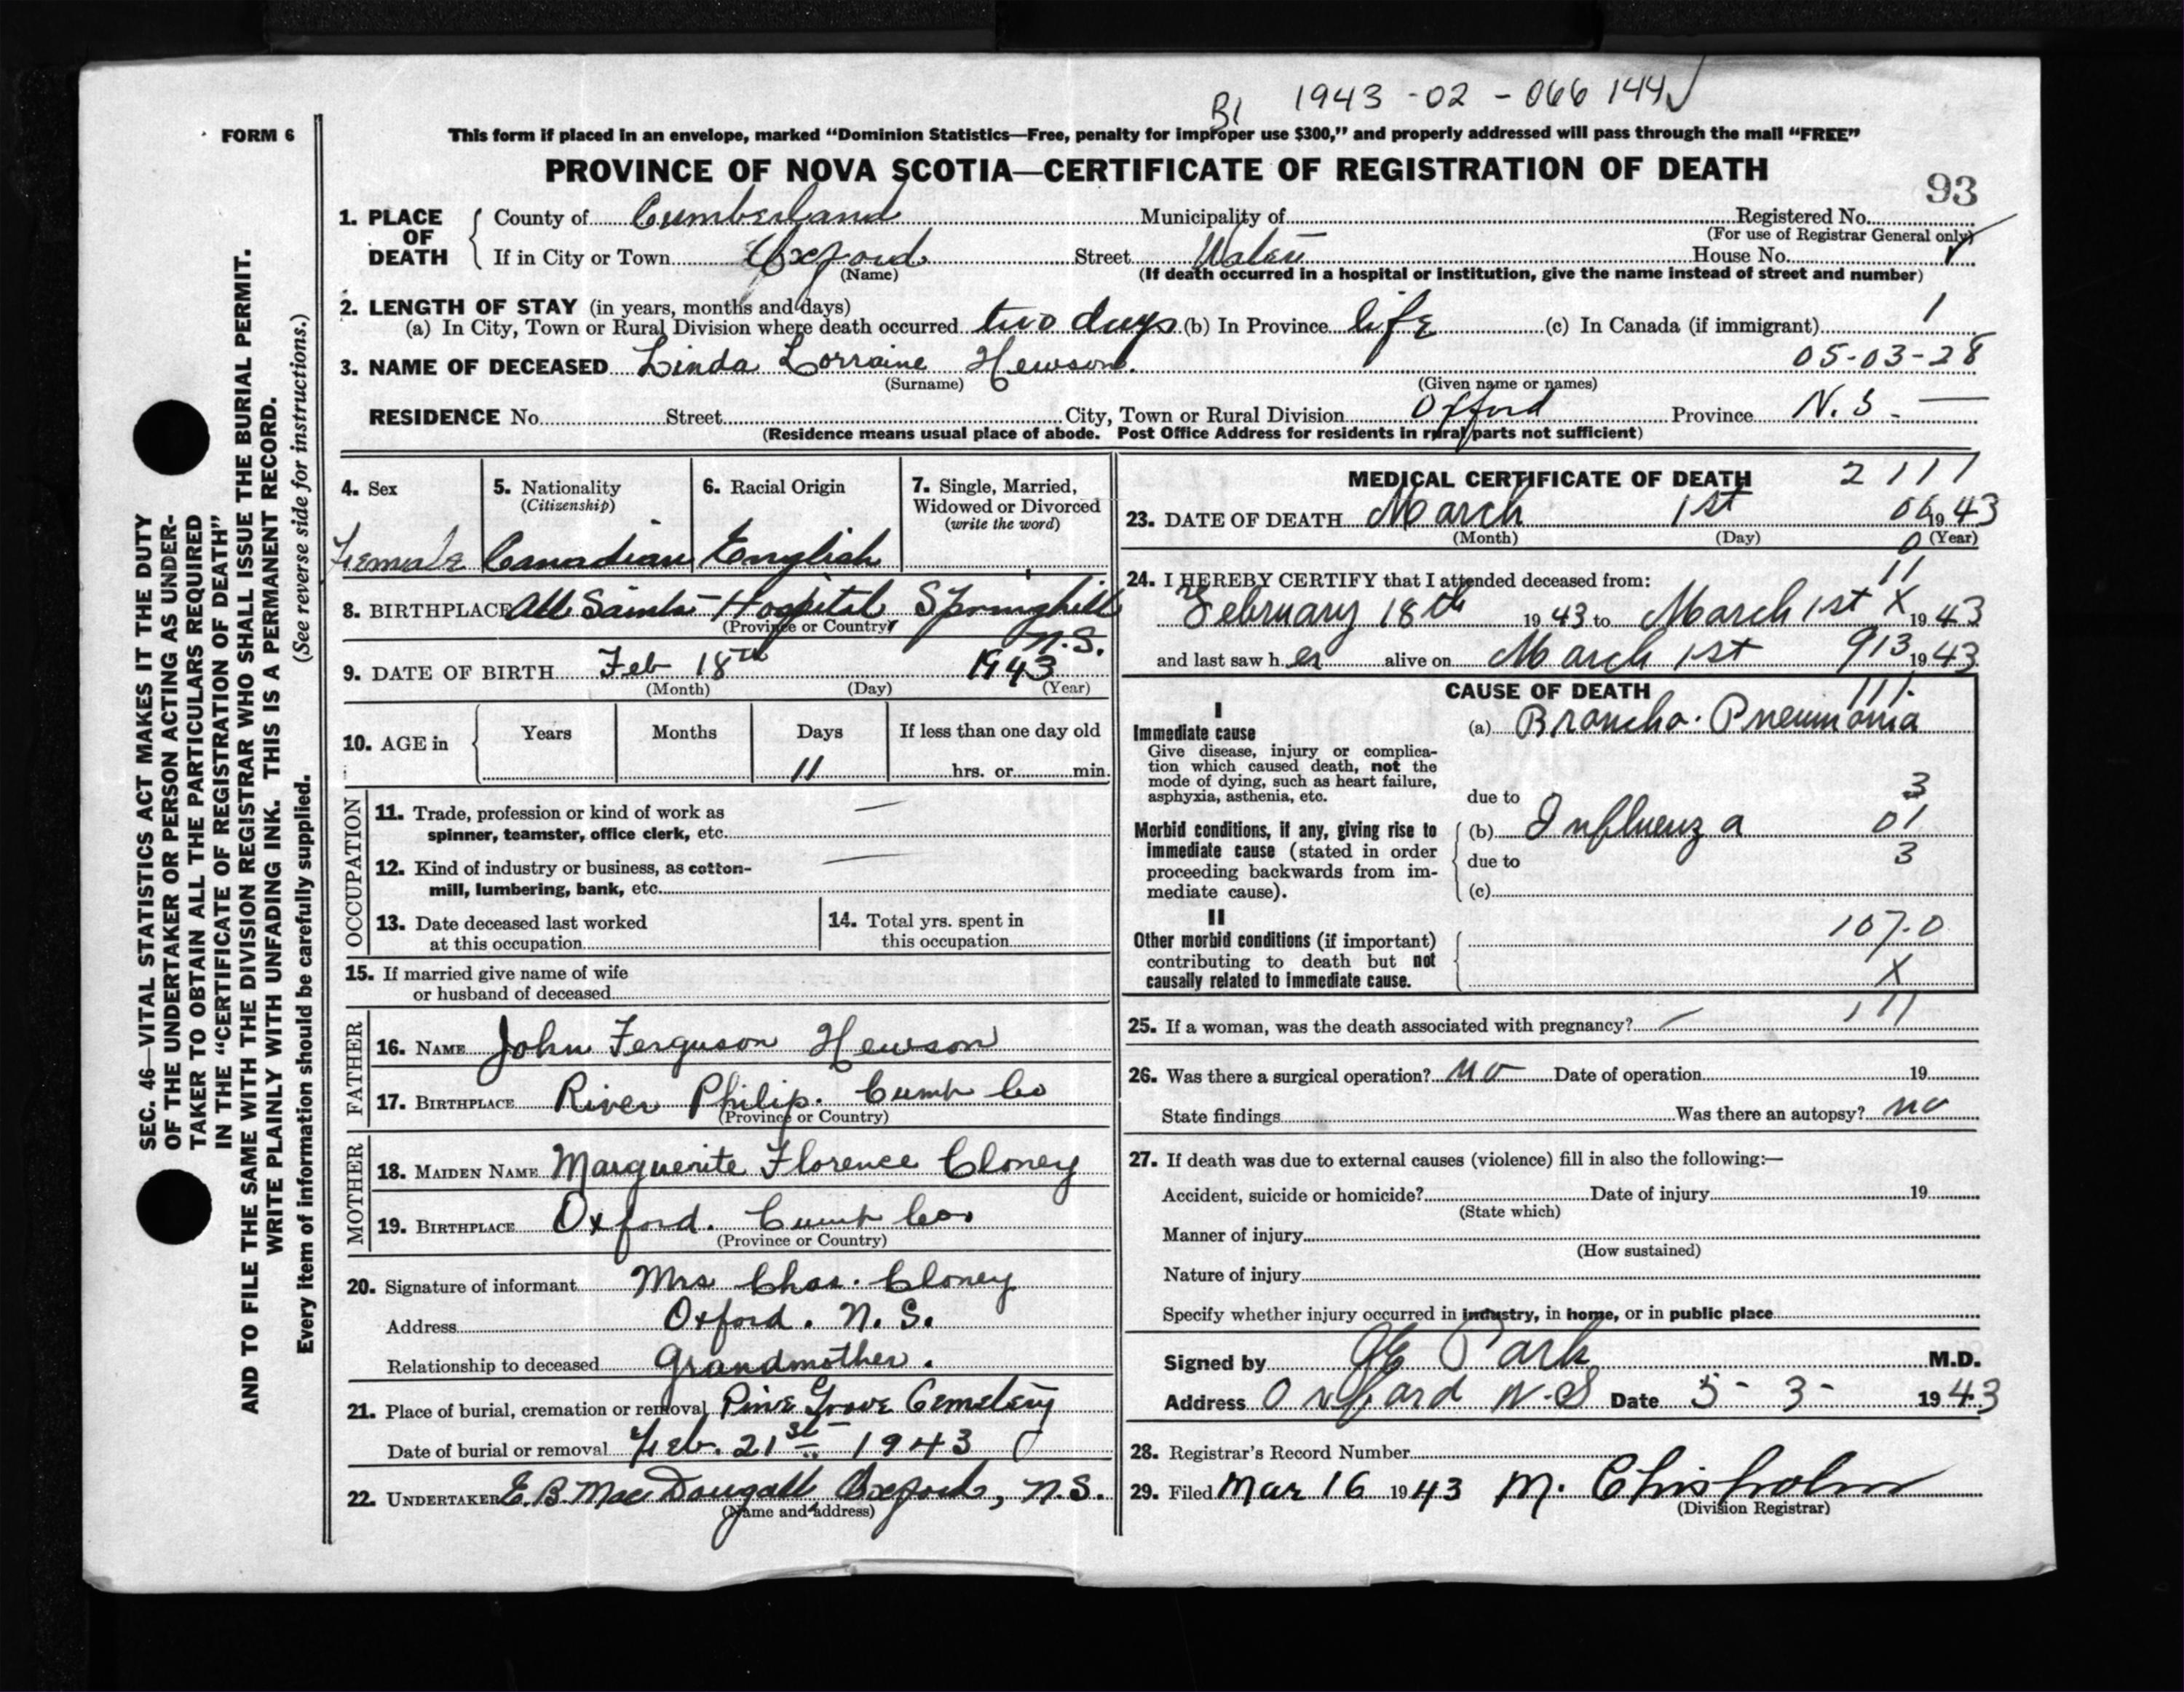 B1 1943-02-066144
FORM 6
This form if placed in an envelope, marked “Dominion Statistics—Free, penalty for improper use $300,” and properly addressed will pass through the mail “FREE”
PROVINCE OF NOVA SCOTIA—CERTIFICATE OF REGISTRATION OF DEATH
93
1. PLACE OF DEATH { County of Cumberland Municipality of Registered No.
(For use of Registrar General only)
If in City or Town Oxford Street Water House No.
(Name) (If death occurred in a hospital or institution, give the name instead of street and number)
2. LENGTH OF STAY (in years, months and days) 1
(a) In City, Town or Rural Division where death occurred two days (b) In Province life (c) In Canada (if immigrant)
05-03-28
3. NAME OF DECEASED Linda Lorraine Hewson.
(Surname) (Given name or names)
RESIDENCE No. Street City, Town or Rural Division Oxford Province N.S.
(Residence means usual place of abode. Post Office Address for residents in rural parts not sufficient)
4. Sex 5. Nationality (Citizenship) 6. Racial Origin 7. Single, Married, Widowed or Divorced (write the word)
Female Canadian English
8. BIRTHPLACE All Saints Hospital Springhill N.S.
(Province or Country)
9. DATE OF BIRTH Feb 18th 1943
(Month) (Day) (Year)
10. AGE in { Years Months Days If less than one day old
11 hrs. or min.
OCCUPATION
11. Trade, profession or kind of work as
spinner, teamster, office clerk, etc. —
12. Kind of industry or business, as cotton-
mill, lumbering, bank, etc. —
13. Date deceased last worked
at this occupation
14. Total yrs. spent in
this occupation
15. If married give name of wife
or husband of deceased
FATHER
16. NAME John Ferguson Hewson
17. BIRTHPLACE River Philip. Cumb Co
(Province or Country)
MOTHER
18. MAIDEN NAME Marguerite Florence Cloney
19. BIRTHPLACE Oxford. Cumb Co.
(Province or Country)
20. Signature of informant Mrs Chas. Cloney
Address Oxford. N.S.
Relationship to deceased Grandmother.
21. Place of burial, cremation or removal Pine Grove Cemetery
Date of burial or removal Feb. 21st 1943
22. UNDERTAKER E.B. MacDougall Oxford, N.S.
(Name and address)
MEDICAL CERTIFICATE OF DEATH 2 111
23. DATE OF DEATH March 1st 06 1943
(Month) (Day) 0 (Year)
24. I HEREBY CERTIFY that I attended deceased from: 11
February 18th 1943 to March 1st X 1943
and last saw her alive on March 1st 913 1943
CAUSE OF DEATH 111.
I
Immediate cause
Give disease, injury or complica-
tion which caused death, not the
mode of dying, such as heart failure,
asphyxia, asthenia, etc.
(a) Broncho. Pneumonia
due to 3
Morbid conditions, if any, giving rise to
immediate cause (stated in order
proceeding backwards from im-
mediate cause).
(b) Influenza 01
due to 3
(c)
II
Other morbid conditions (if important)
contributing to death but not
causally related to immediate cause.
107.0
X
25. If a woman, was the death associated with pregnancy? — 111
26. Was there a surgical operation? no Date of operation 19
State findings Was there an autopsy? no
27. If death was due to external causes (violence) fill in also the following:—
Accident, suicide or homicide? Date of injury 19
(State which)
Manner of injury
(How sustained)
Nature of injury
Specify whether injury occurred in industry, in home, or in public place
Signed by Park M.D.
Address Oxford N.S Date 5-3- 1943
28. Registrar's Record Number
29. Filed Mar 16 1943 M. Chisholm
(Division Registrar)
SEC. 46—VITAL STATISTICS ACT MAKES IT THE DUTY
OF THE UNDERTAKER OR PERSON ACTING AS UNDER-
TAKER TO OBTAIN ALL THE PARTICULARS REQUIRED
IN THE “CERTIFICATE OF REGISTRATION OF DEATH”
AND TO FILE THE SAME WITH THE DIVISION REGISTRAR WHO SHALL ISSUE THE BURIAL PERMIT.
WRITE PLAINLY WITH UNFADING INK. THIS IS A PERMANENT RECORD.
Every item of information should be carefully supplied. (See reverse side for instructions.)